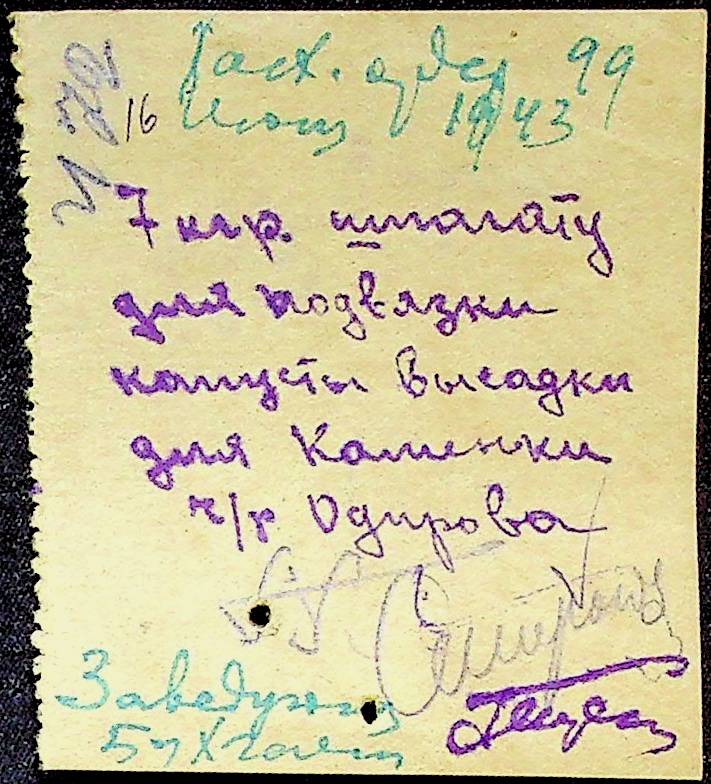 № 72
Расх. ордер 99
16 Июня 1943
7 кгр. шпагату
для подвязки
капусты высадки
для Каменки
ч/р Одирова
Заведующ
Бухгалт